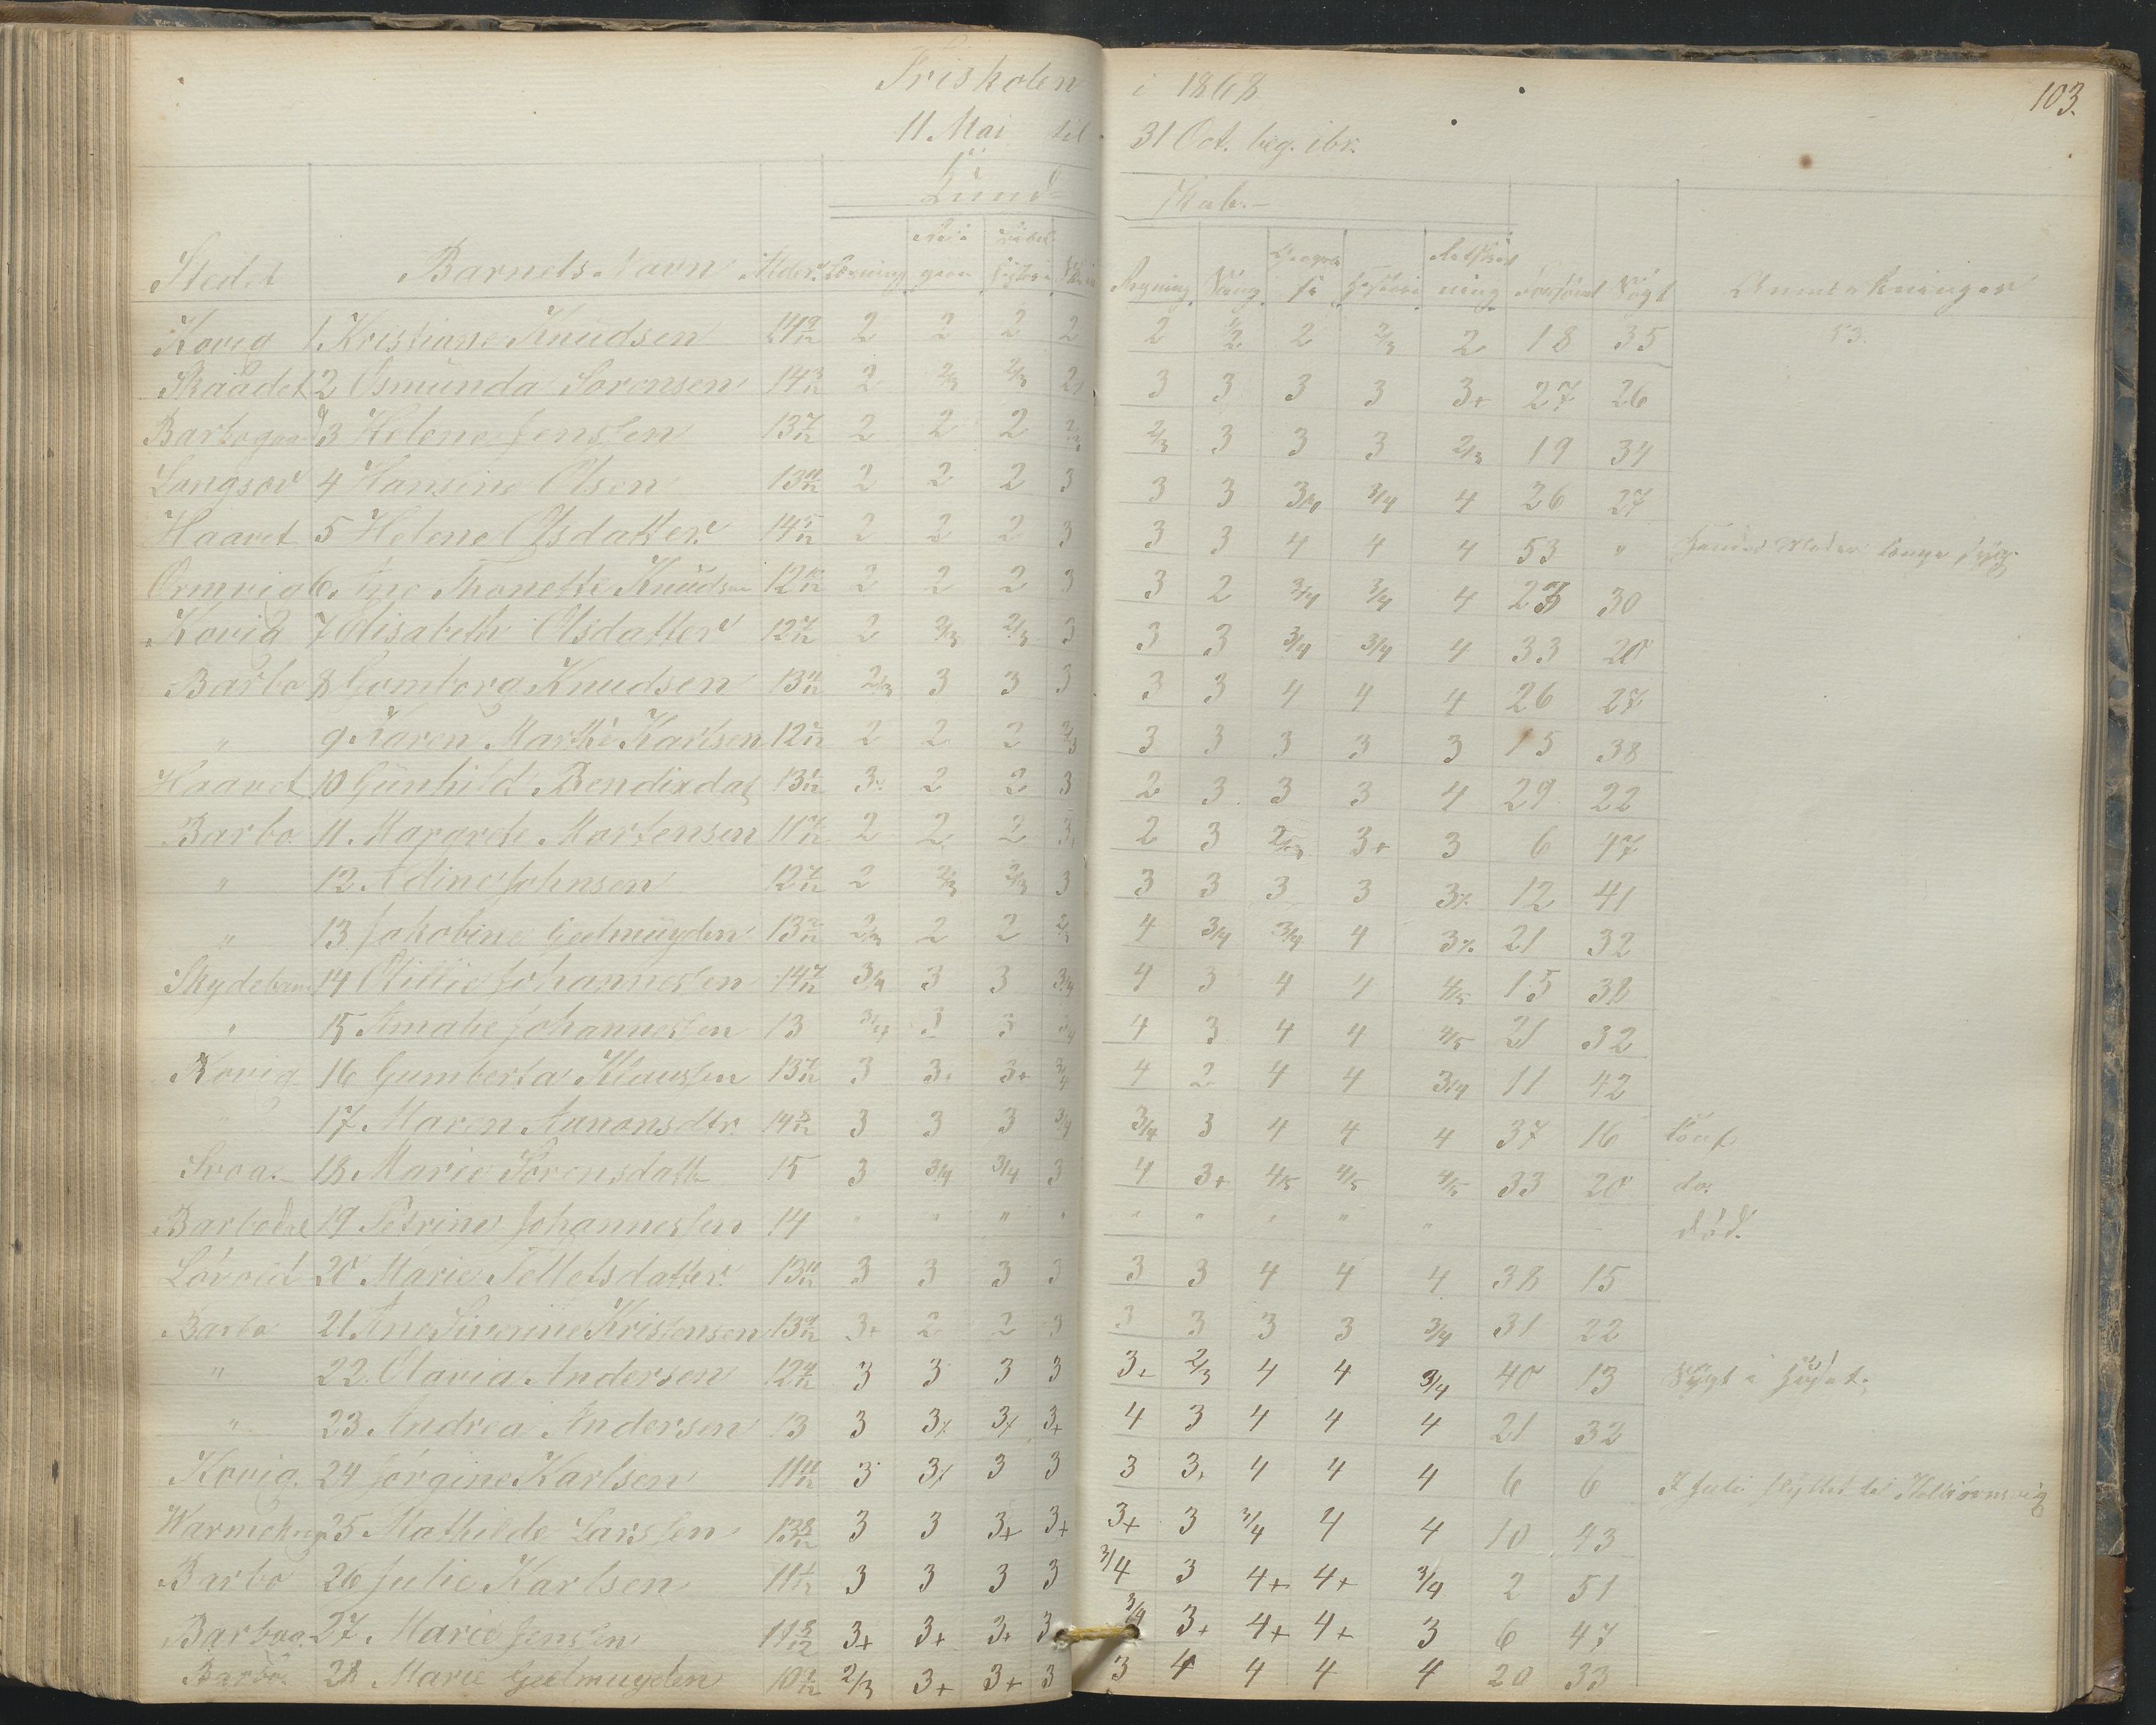 Friskolen i 1868
103.
11 Mai til 31 Oct. beg. ibr.
Kund- skab.-
Stedet Barnets Navn Alder. Læsning Reli gion Bibel historie Regning Sang Geogra fi Historie Retskriv ning Forsömt Sögt Anmærkninger
Kovig 1. Kristiane Knudsen 14 9/12 2 2 2 2 2 1/2 2 2/3 2 18 35 53.
Skaadet 2 Osmunda Sorensen 14 3/12 2 2/3 2/3 3 3 3 3 3+ 27 26
Barbogaard 3 Helene Jensen 13 7/12 2 2 2 2/3 3 3 3 2/3 19 34
Langsæv 4 Hansine Olsen 13 11/12 2 2 2 3 3 3 3/4 4 26 27
Haavet 5 Helene Olsdatter 14 5/12 2 2 2 3 3 3 4 4 4 53 " længe syg.
Ormvig 6. Ane Thonette Knudsen 12 10/12 2 2 2 3 3 2 3/4 3/4 4 23 30
Kovig 7 Elisabeth Olsdatter 12 7/12 2 2/3 2/3 3 3 3 3/4 3/4 4 33 20
Barbo 8 Gomborg Knudsen 13 11/12 2/3 3 3 3 3 3 4 4 4 26 27
" 9 Karen Marthe Karlsen 12 2 2 2 2/3 3 3 3 3 3 15 38
Haavet 10 Gunhild Bendixdat 13 1/12 3 2 2 3 2 3 3 3 4 29 22
Barbo. 11. Margrete Mortensen 11 7/12 2 2 2 3+ 2 3 2/3 3+ 3 6 47
" 12. Adine Johnsen 12 7/12 2 2/3 2/3 3 3 3 3 3 3% 12 41
" 13. Jakobine Geelmuyden 13 2/12 2/3 2 2 2/3 4 3/4 3/4 4 3% 21 32
14 Otilie Johannessen 14 7/12 3/4 3 3 3/4 4 3 4 4 4/5 15 38
" 15 Amalie Johannessen 13 3/4 3 3 3/4 4 3 4 4 4/5 21 32
Kovig 16 Gumberta Klaussen 13 7/12 3 3+ 3+ 3/4 4 2 4 4 3/4 11 42
" 17. Maren Aanonsdtr. 14 3 3 3 3/4 3/4 3 4 4 4 37 16
18 Marie Sorensdatt 15 3 3/4 3/4 3 4 3+ 4/5 4/5 4/5 33 20 do.
19 Petrine Johannessen 14 " " " " " " " " " död.
20 Marie Tellefsdatter. 13 11/12 3 3 3 3 3 3 4 4 4 38 15
Barbo 21 Ane Sivrine Kristensen 13 9/12 3+ 2 2 3 3 3 3 3 3/4 31 22
" 22. Olavia Andersen 12 3 3 3 3 3+ 2/3 4 4 3/4 40 13
" 23 Andrea Andersen 13 3 3% 3% 3+ 4 3 4 4 4 21 32
Kovig. 24 Jörgine Karlsen 11 11/12 3 3% 3 3 3 3+ 4 4 4 6 6 I Juli flyttet til
25 Mathilde Larssen 13 8/12 3 3 3+ 3+ 3+ 3 3/4 4 4 10 43
Barbo 26 Julie Karlsen 11 1/12 3 3 3 3 3/4 3 4+ 4+ 3/4 2 51
27 Marie Jensen 11 8/12 3+ 3+ 3+ 3 3/4 3+ 4+ 4+ 3 6 47
Barbo. 28 Marie Geelmuyden 10 1/12 2/3 3+ 3+ 3 3 4 4 4 4 20 33